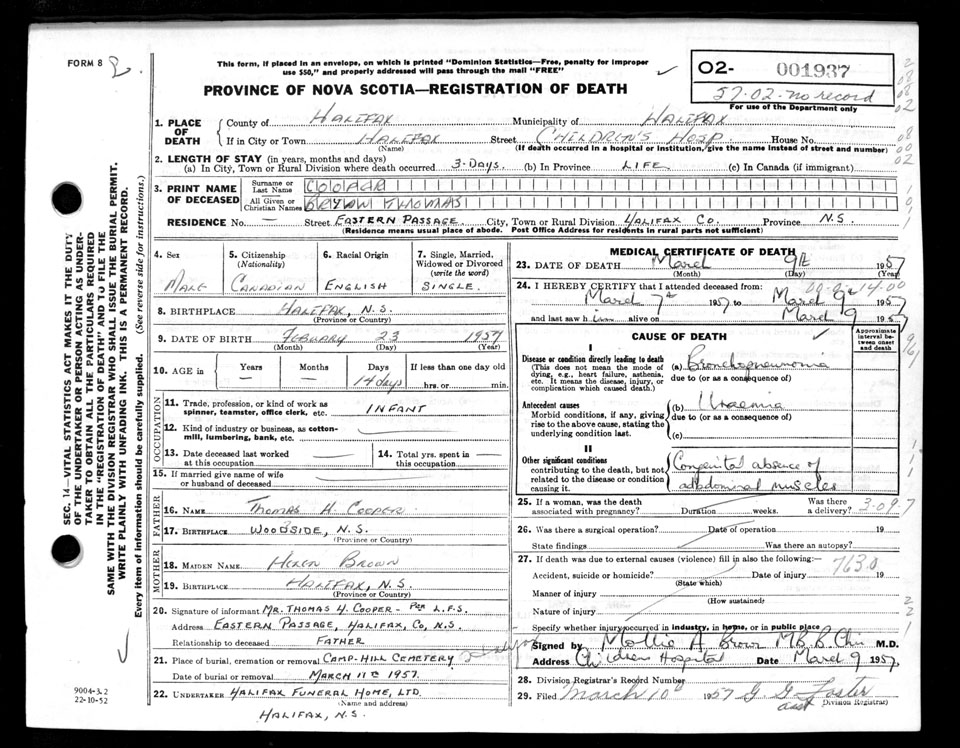 FORM 8
2
This form, if placed in an envelope, on which is printed "Dominion Statistics—Free, penalty for improper
use $50," and properly addressed will pass through the mail "FREE"
02- 001937
57-02-no record
For use of the Department only
PROVINCE OF NOVA SCOTIA—REGISTRATION OF DEATH
1. PLACE OF DEATH
County of HALIFAX Municipality of HALIFAX
If in City or Town HALIFAX Street CHILDREN'S HOSP. House No.
(Name) (If death occurred in a hospital or institution, give the name instead of street and number)
2. LENGTH OF STAY (in years, months and days)
(a) In City, Town or Rural Division where death occurred 3-DAYS. (b) In Province LIFE (c) In Canada (if immigrant)
3. PRINT NAME OF DECEASED
Surname or Last Name COOPER
All Given or Christian Names THOMAS
RESIDENCE No. — Street EASTERN PASSAGE. City, Town or Rural Division HALIFAX CO. Province N.S.
(Residence means usual place of abode. Post Office Address for residents in rural parts not sufficient)
4. Sex
MALE
5. Citizenship (Nationality)
CANADIAN
6. Racial Origin
ENGLISH
7. Single, Married, Widowed or Divorced (write the word)
SINGLE.
8. BIRTHPLACE HALIFAX, N.S.
(Province or Country)
9. DATE OF BIRTH FEBUARY 23 1957
(Month) (Day) (Year)
10. AGE in Years Months Days If less than one day old
14 days hrs. or min.
OCCUPATION
11. Trade, profession, or kind of work as spinner, teamster, office clerk, etc. INFANT
12. Kind of industry or business, as cotton-mill, lumbering, bank, etc.
13. Date deceased last worked at this occupation
14. Total yrs. spent in this occupation
15. If married give name of wife or husband of deceased
FATHER
16. NAME THOMAS H. COOPER
17. BIRTHPLACE WOODSIDE, N.S.
(Province or Country)
MOTHER
18. MAIDEN NAME HELEN BROWN
19. BIRTHPLACE HALIFAX, N.S.
(Province or Country)
20. Signature of informant MR. THOMAS H. COOPER - PER L.F.S.
Address EASTERN PASSAGE, HALIFAX, CO, N.S.
Relationship to deceased FATHER
21. Place of burial, cremation or removal CAMP-HILL CEMETERY
Date of burial or removal MARCH 11TH 1957.
22. UNDERTAKER HALIFAX FUNERAL HOME, LTD.
(Name and address)
HALIFAX, N.S.
MEDICAL CERTIFICATE OF DEATH
23. DATE OF DEATH March 9th 1957
(Month) (Day) (Year)
24. I HEREBY CERTIFY that I attended deceased from:
March 7th 1957 to March 9th 1957
and last saw him alive on March 9 1957
CAUSE OF DEATH
Approximate interval between onset and death
I
Disease or condition directly leading to death
(This does not mean the mode of dying, e.g., heart failure, asthenia, etc. It means the disease, injury, or complication which caused death.)
(a) Bronchopneumonia
due to (or as a consequence of)
Antecedent causes
Morbid conditions, if any, giving rise to the above cause, stating the underlying condition last.
(b) Uraemia
due to (or as a consequence of)
(c)
II
Other significant conditions
contributing to the death, but not related to the disease or condition causing it.
Congenital absence of
abdominal muscles
25. If a woman, was the death associated with pregnancy? Duration weeks. Was there a delivery?
3-09.7
26. Was there a surgical operation? Date of operation 19
State findings Was there an autopsy?
27. If death was due to external causes (violence) fill in also the following:—
7630
Accident, suicide or homicide? Date of injury 19
(State which)
Manner of injury
(How sustained)
Nature of injury
Specify whether injury occurred in industry, in home, or in public place
Signed by Mollie A Brown M.B. B Chir M.D.
Address Children Hospital Date March 9 1957.
28. Division Registrar's Record Number
29. Filed March 10th 1957 G. G. Foster
asst Division Registrar
SEC. 14—VITAL STATISTICS ACT MAKES IT THE DUTY
OF THE UNDERTAKER OR PERSON ACTING AS UNDER-
TAKER TO OBTAIN ALL THE PARTICULARS REQUIRED
IN THE "REGISTRATION OF DEATH" AND TO FILE THE
SAME WITH THE DIVISION REGISTRAR WHO SHALL ISSUE THE BURIAL PERMIT.
WRITE PLAINLY WITH UNFADING INK. THIS IS A PERMANENT RECORD.
Every item of information should be carefully supplied. (See reverse side for instructions.)
9004-3.2
22-10-52